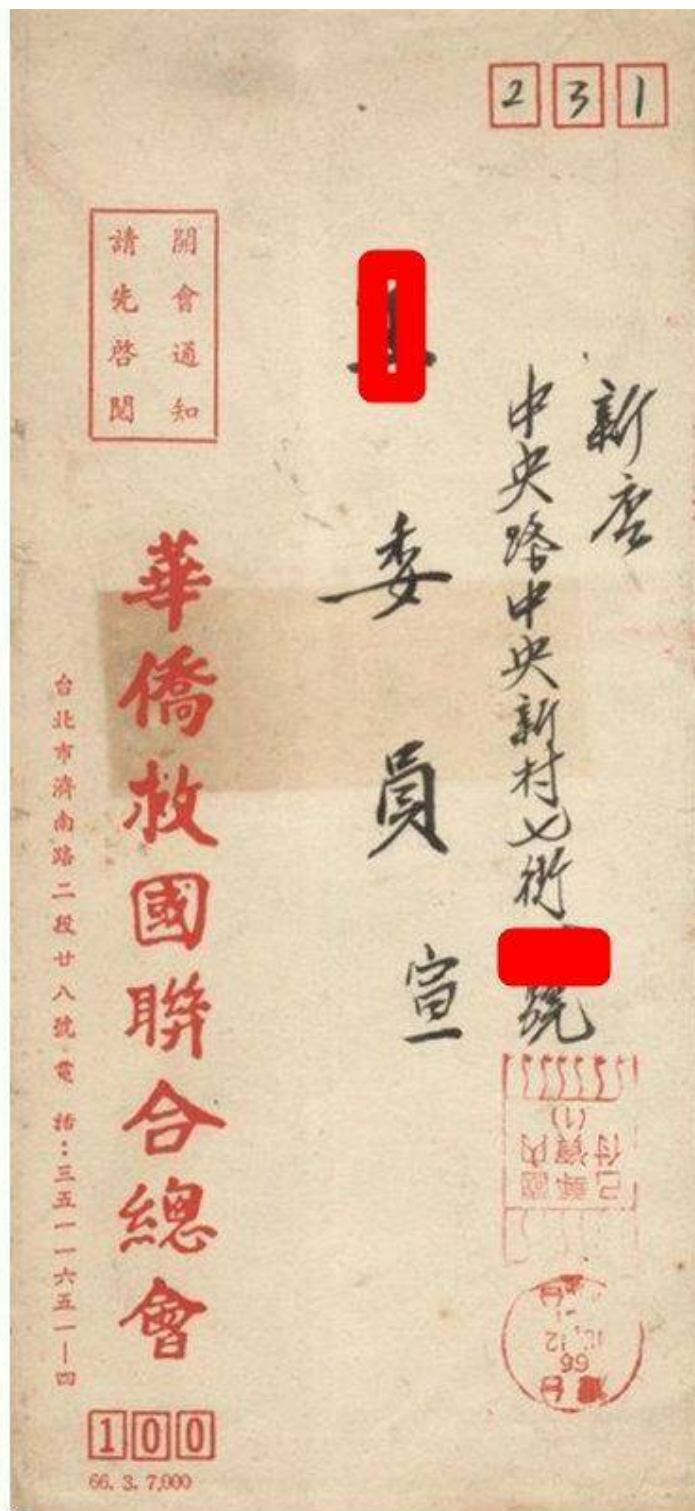 231
新店
中央路中央新村七街
號
委員宣
開會通知
請先啓閱
華僑救國聯合總會
台北市濟南路二段廿八號電話：三五一一六五一—四
100
66. 3. 7,000
國內
郵資
已付
(1)
66